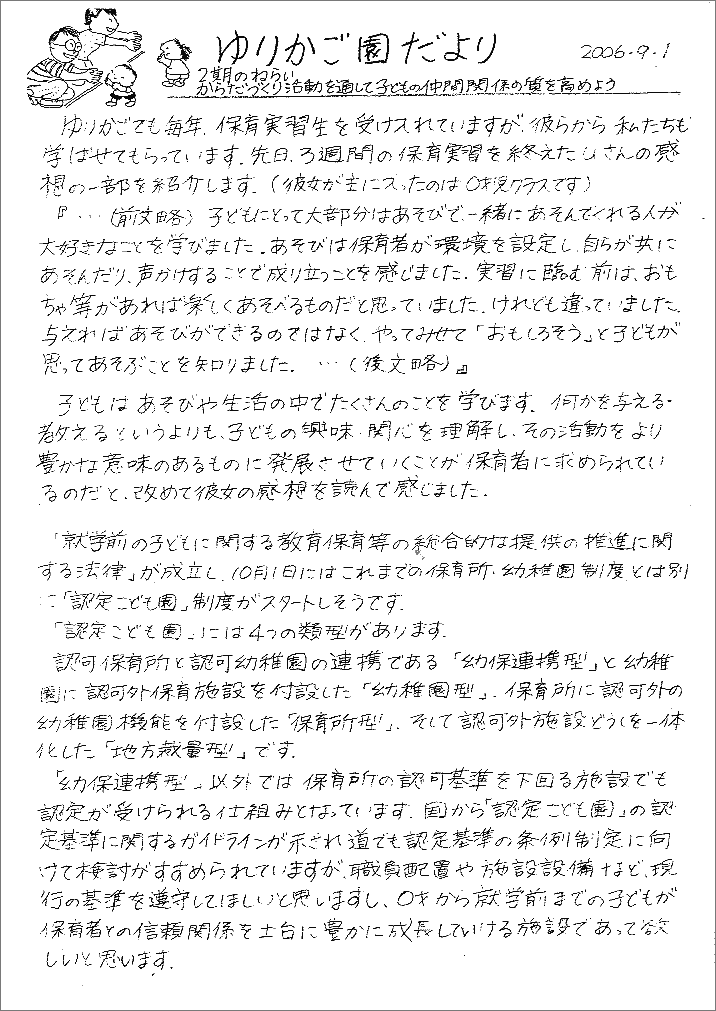 ゆりかご園だより
2006.9.1
2期のねらい
からだづくり活動を通して子どもの仲間関係の質を高めよう
ゆりかごでも毎年、保育実習生を受け入れていますが、彼らから私たちも
学ばせてもらっています。先日、3週間の保育実習を終えたUさんの感
想の一部を紹介します。(彼女が主に入ったのは0才児クラスです)
『…(前文略)子どもにとって大部分はあそびで、一緒にあそんでくれる人が
大好きなことを学びました。あそびは保育者が環境を設定し、自らが共に
あそんだり、声かけすることで成り立つことを感じました。実習に臨む前は、おも
ちゃ等があれば楽しくあそべるものだと思っていました。けれども違っていました。
与えればあそびができるのではなく、やってみせて「おもしろそう」と子どもが
思ってあそぶことを知りました。…(後文略)』
子どもはあそびや生活の中でたくさんのことを学びます。何かを与える・
教えるというよりも、子どもの興味・関心を理解し、その活動をより
豊かな意味のあるものに発展させていくことが保育者に求められてい
るのだと、改めて彼女の感想を読んで感じました。
「就学前の子どもに関する教育保育等の総合的な提供の推進に関
する法律」が成立し、10月1日にはこれまでの保育所・幼稚園制度とは別
に「認定こども園」制度がスタートしそうです。
「認定こども園」には4つの類型があります。
認可保育所と認可幼稚園の連携である「幼保連携型」と幼稚
園に認可外保育施設を付設した「幼稚園型」、保育所に認可外の
幼稚園機能を付設した「保育所型」、そして認可外施設どうしを一体
化した「地方裁量型」です。
「幼保連携型」以外では保育所の認可基準を下回る施設でも
認定が受けられる仕組みとなっています。国から「認定こども園」の認
定基準に関するガイドラインが示され道でも認定基準の条例制定に向
けて検討がすすめられていますが、職員配置や施設設備など、現
行の基準を遵守してほしいと思いますし、0才から就学前までの子どもが
保育者との信頼関係を土台に豊かに成長していける施設であって欲
しいと思います。